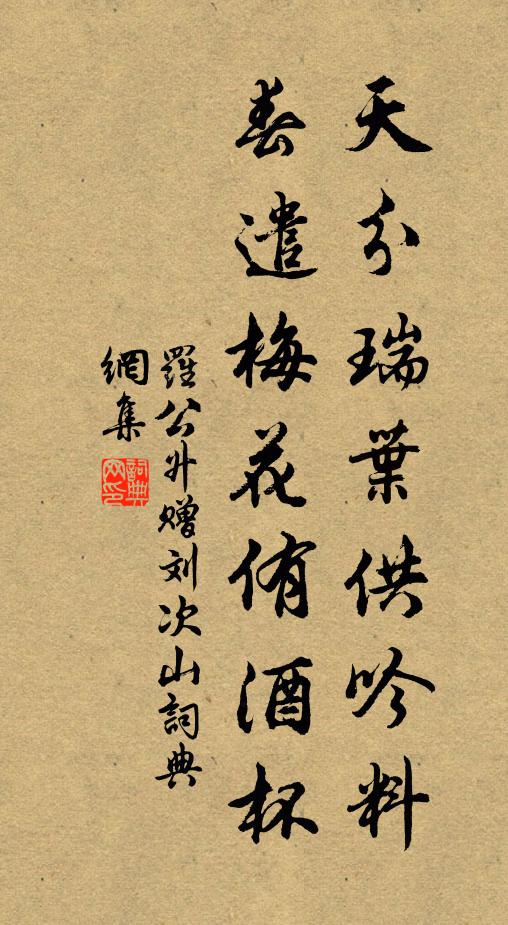 天分瑞葉供吟料
春遣梅花侑酒杯
羅公升贈刘次山詞典
網集
詞典
网印